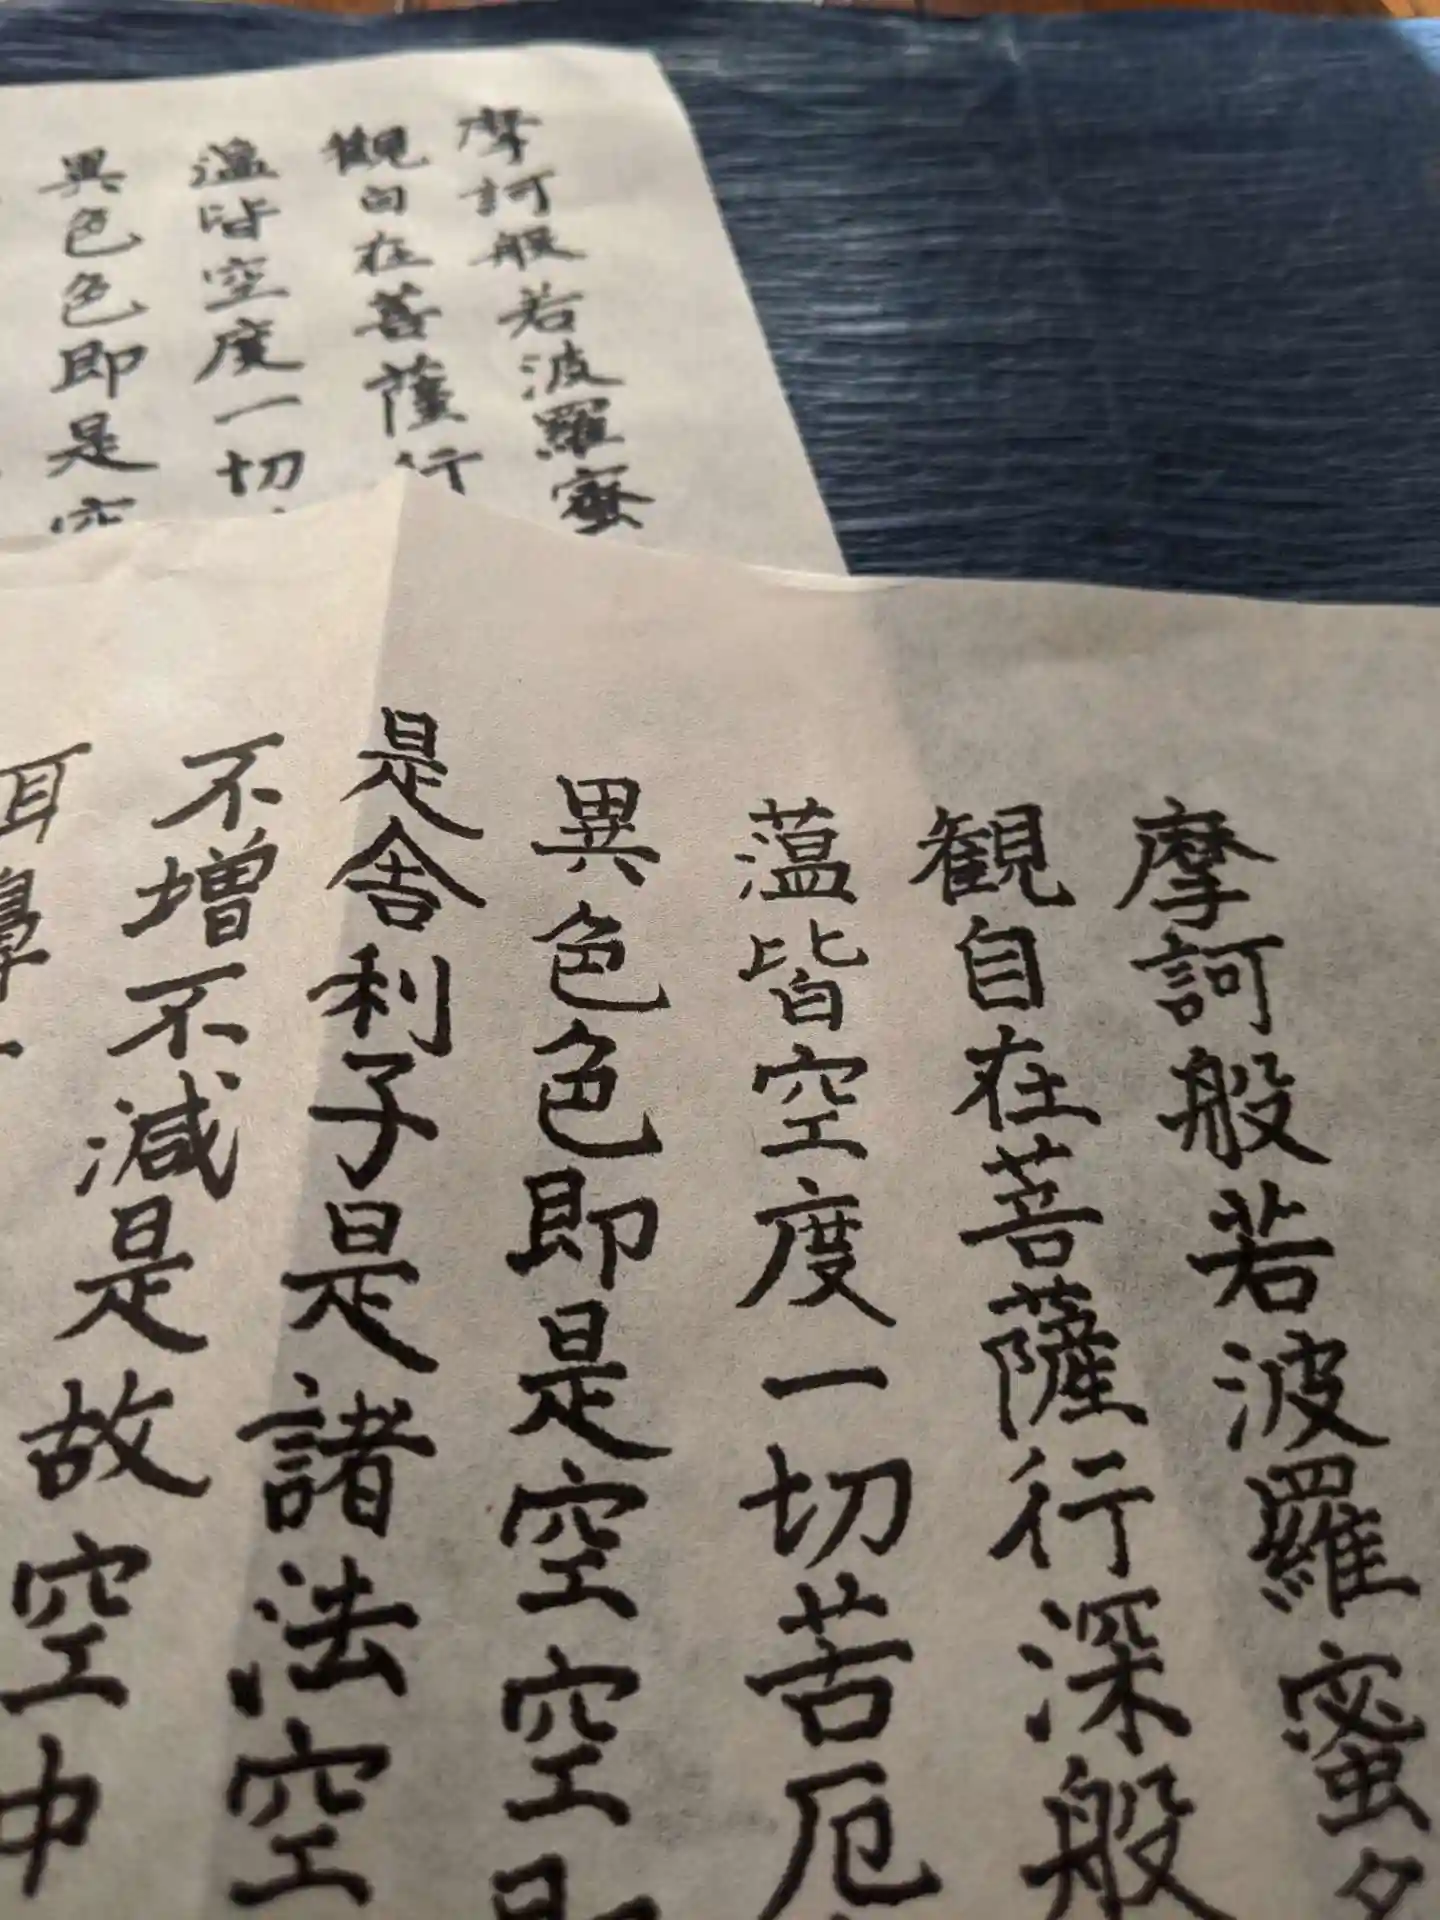 摩訶般若波羅蜜
観自在菩薩行深般
薀皆空度一切苦厄
異色色即是空空
是舎利子是諸法空
不増不減是故空中
耳鼻
摩訶般若波羅蜜
觀自在菩薩行
薀皆空度一切
異色色即是空